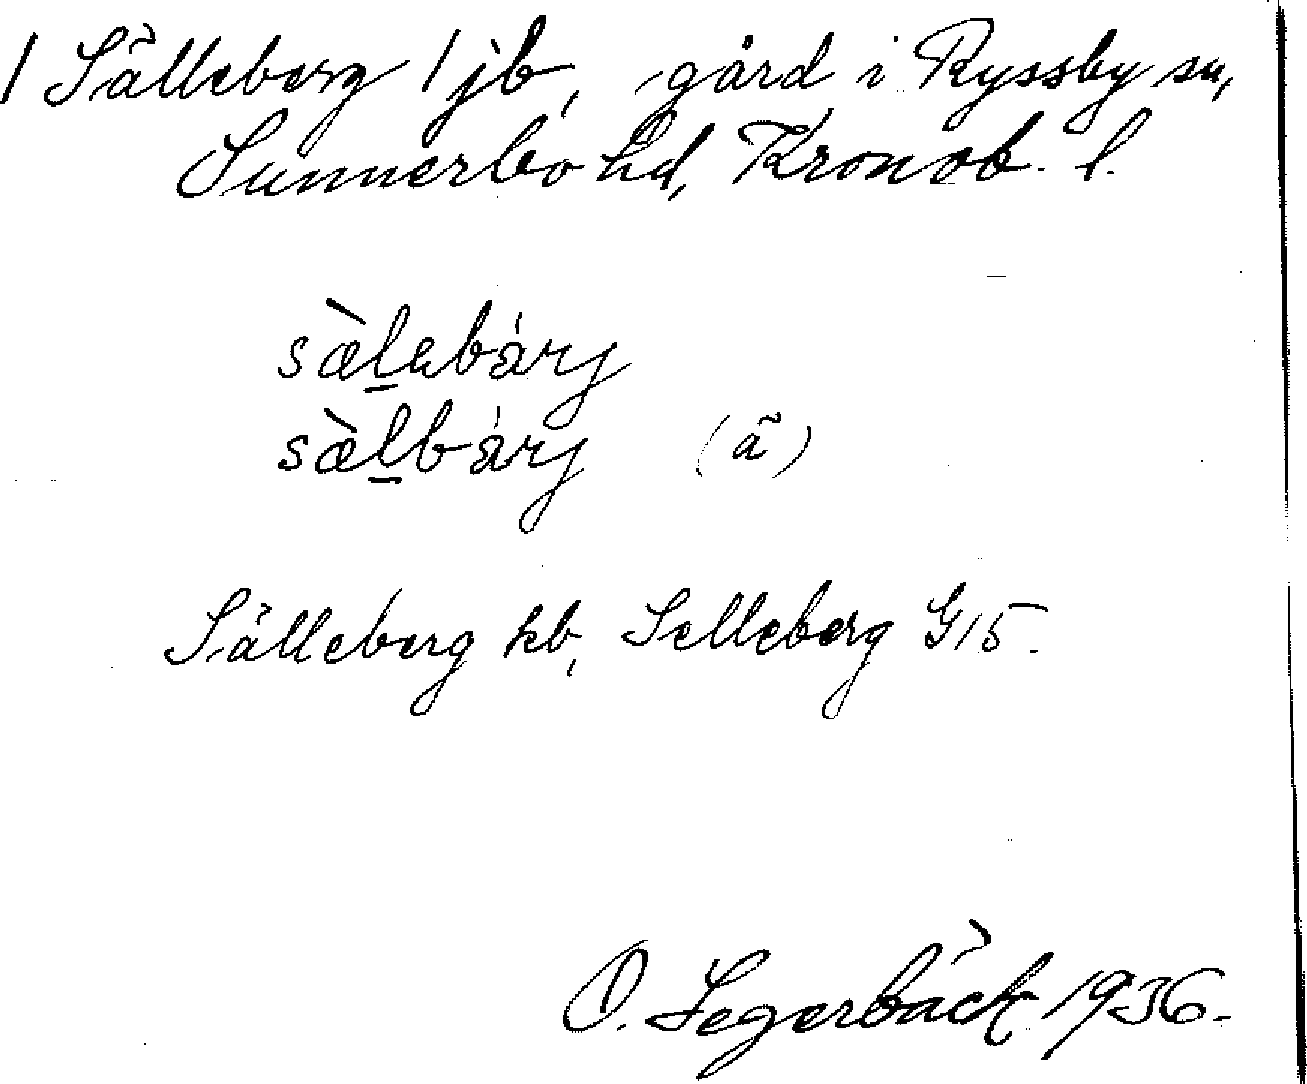 / Sälleberg / jb, gård i Ryssby sn,
Sunnerbo hd, Kronob. l.
sæ̀l̲ebárj
sæ̀l̲bárj (ã)
Sälleberg kb, Selleberg G15.
O. Segerbäck 1936.